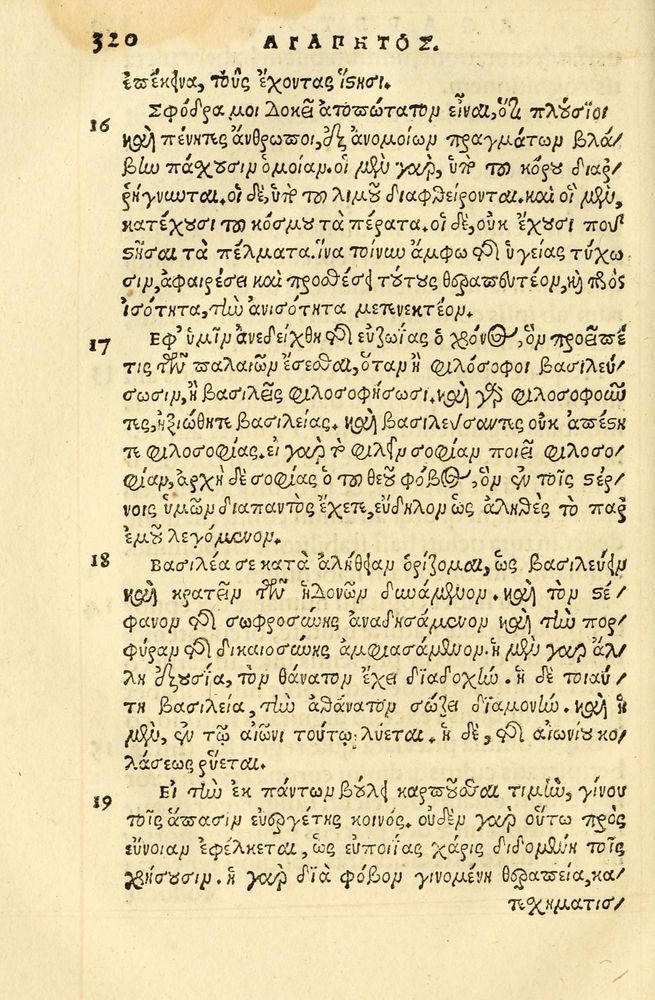 320 ΑΓΑΠΗΤΟΣ.
ἐπέκεινα, τοὺς ἔχοντας ἵστησι.
16 Σφόδρα μοι δοκεῖ ἀτοπώτατον εἶναι, ὅτι πλούσιοι
καὶ πένητες ἄνθρωποι, ἐξ ἀνομοίων πραγμάτων βλά/
βην πάσχουσιν ὁμοίαν. οἱ μὲν γὰρ, ὑπὸ τοῦ κόρου διαῤ/
ῥήγνυνται. οἱ δὲ, ὑπὸ τοῦ λιμοῦ διαφθείρονται. καὶ οἱ μὲν,
κατέχουσι τοῦ κόσμου τὰ πέρατα. οἱ δὲ, οὐκ ἔχουσι ποῦ
στῆσαι τὰ πέλματα. ἵνα τοίνυν ἄμφω τῆς ὑγείας τύχω
σιν, ἀφαιρέσει καὶ προσθέσει τούτους θεραπευτέον, καὶ πρὸς
ἰσότητα, τὴν ἀνισότητα μετενεκτέον.
17 Εφ' ὑμῖν ἀνεδείχθη τῆς εὐζωΐας ὁ χρόνος, ὃν προεῖπέ
τις τῶν παλαιῶν ἔσεσθαι, ὅταν ἢ φιλόσοφοι βασιλεύ/
σωσιν, ἢ βασιλεῖς φιλοσοφήσωσι. καὶ γὰρ φιλοσοφοῦν
τες, ἠξιώθητε βασιλείας. καὶ βασιλεύσαντες οὐκ ἀπέστη
τε φιλοσοφίας. εἰ γὰρ τὸ φιλεῖν σοφίαν ποιεῖ φιλοσο/
φίαν, ἀρχὴ δὲ σοφίας ὁ τοῦ θεοῦ φόβος, ὃν ἐν τοῖς στέρ/
νοις ὑμῶν διαπαντὸς ἔχετε, εὔδηλον ὡς ἀληθὲς τὸ παρ
ἐμοῦ λεγόμενον.
18 Βασιλέα σε κατὰ ἀλήθειαν ὁρίζομαι, ὡς βασιλεύειν
καὶ κρατεῖν τῶν ἡδονῶν δυνάμενον. καὶ τὸν στέ/
φανον τῆς σωφροσύνης ἀναδησάμενον καὶ τὴν πορ/
φύραν τῆς δικαιοσύνης ἀμφιασάμενον. ἡ μὲν γὰρ ἄλ/
λη ἐξουσία, τὸν θάνατον ἔχει διαδοχήν. ἡ δὲ τοιαύ/
τη βασιλεία, τὴν ἀθάνατον σώζει διαμονήν. καὶ ἡ
μὲν, ἐν τῷ αἰῶνι τούτῳ λύεται. ἡ δὲ, τῆς αἰωνίου κο/
λάσεως ῥύεται.
19 Εἰ τὴν ἐκ πάντων βούλει καρποῦσθαι τιμὴν, γίνου
τοῖς ἅπασιν εὐεργέτης κοινός. οὐδὲν γὰρ οὕτω πρὸς
εὔνοιαν ἐφέλκεται, ὡς εὐποιΐας χάρις διδομένη τοῖς
χρήζουσιν. ἡ γὰρ διὰ φόβον γινομένη θεραπεία, κα/
τεσχηματισ/